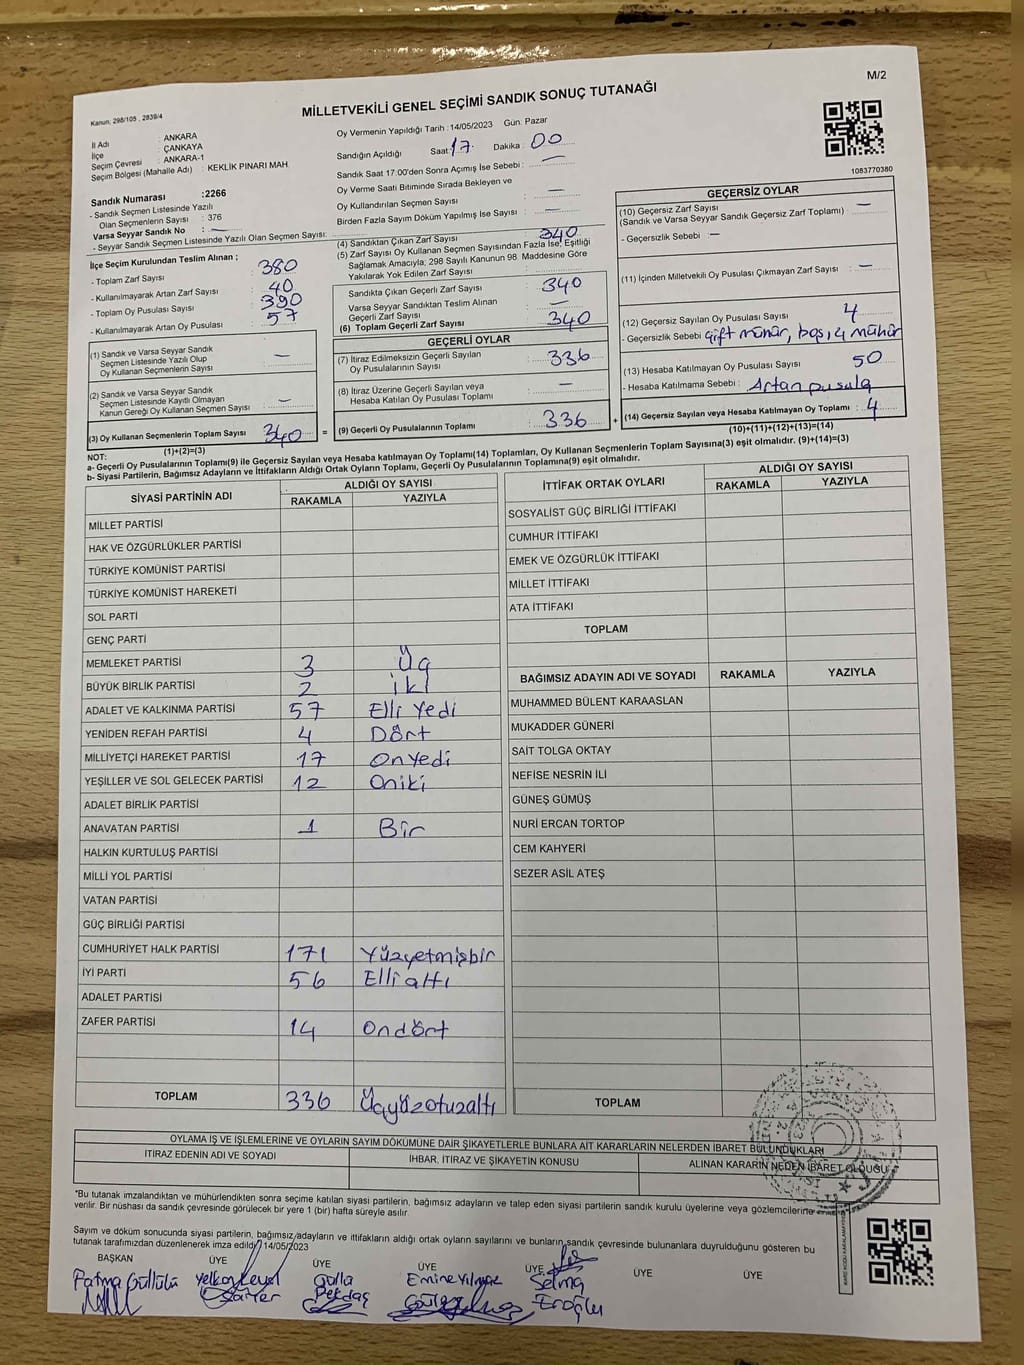 M/2
MİLLETVEKİLİ GENEL SEÇİMİ SANDIK SONUÇ TUTANAĞI
Kanun: 298/105 , 2839/4
İl Adı : ANKARA
İlçe : ÇANKAYA
Seçim Çevresi : ANKARA-1
Seçim Bölgesi (Mahalle Adı) : KEKLİK PINARI MAH.
Oy Vermenin Yapıldığı Tarih : 14/05/2023 Gün: Pazar
Sandığın Açıldığı Saat: 17 Dakika : 00
Sandık Saat 17.00'den Sonra Açımış İse Sebebi : —
Oy Verme Saati Bitiminde Sırada Bekleyen ve
Oy Kullandırılan Seçmen Sayısı : —
Birden Fazla Sayım Döküm Yapılmış İse Sayısı : —
1083770380
Sandık Numarası :2266
- Sandık Seçmen Listesinde Yazılı
Olan Seçmenlerin Sayısı : 376
Varsa Seyyar Sandık No : —
- Seyyar Sandık Seçmen Listesinde Yazılı Olan Seçmen Sayısı:
İlçe Seçim Kurulundan Teslim Alınan ;
- Toplam Zarf Sayısı : 380
- Kullanılmayarak Artan Zarf Sayısı : 40
- Toplam Oy Pusulası Sayısı : 390
- Kullanılmayarak Artan Oy Pusulası : 57
(1) Sandık ve Varsa Seyyar Sandık
Seçmen Listesinde Yazılı Olup
Oy Kullanan Seçmenlerin Sayısı : —
(2) Sandık ve Varsa Seyyar Sandık
Seçmen Listesinde Kayıtlı Olmayan
Kanun Gereği Oy Kullanan Seçmen Sayısı : —
(3) Oy Kullanan Seçmenlerin Toplam Sayısı : 340 =
(1)+(2)=(3)
(4) Sandıktan Çıkan Zarf Sayısı : 340
(5) Zarf Sayısı Oy Kullanan Seçmen Sayısından Fazla İse, Eşitliği
Sağlamak Amacıyla, 298 Sayılı Kanunun 98 Maddesine Göre
Yakılarak Yok Edilen Zarf Sayısı :
Sandıkta Çıkan Geçerli Zarf Sayısı : 340
Varsa Seyyar Sandıktan Teslim Alınan
Geçerli Zarf Sayısı : —
(6) Toplam Geçerli Zarf Sayısı : 340
GEÇERLİ OYLAR
(7) İtiraz Edilmeksizin Geçerli Sayılan
Oy Pusulalarının Sayısı : 336
(8) İtiraz Üzerine Geçerli Sayılan veya
Hesaba Katılan Oy Pusulası Toplamı : —
(9) Geçerli Oy Pusulalarının Toplamı : 336 +
GEÇERSİZ OYLAR
(10) Geçersiz Zarf Sayısı : —
(Sandık ve Varsa Seyyar Sandık Geçersiz Zarf Toplamı)
- Geçersizlik Sebebi : —
(11) İçinden Milletvekili Oy Pusulası Çıkmayan Zarf Sayısı : —
(12) Geçersiz Sayılan Oy Pusulası Sayısı : 4
- Geçersizlik Sebebi : Çift mühür, boş, 4 mühür
(13) Hesaba Katılmayan Oy Pusulası Sayısı : 50
- Hesaba Katılmama Sebebi : Artan pusula
(14) Geçersiz Sayılan veya Hesaba Katılmayan Oy Toplamı : 4
(10)+(11)+(12)+(13)=(14)
NOT:
a- Geçerli Oy Pusulalarının Toplamı(9) ile Geçersiz Sayılan veya Hesaba katılmayan Oy Toplamı(14) Toplamları, Oy Kullanan Seçmenlerin Toplam Sayısına(3) eşit olmalıdır. (9)+(14)=(3)
b- Siyasi Partilerin, Bağımsız Adayların ve İttifakların Aldığı Ortak Oyların Toplamı, Geçerli Oy Pusulalarının Toplamına(9) eşit olmalıdır.
SİYASİ PARTİNİN ADI ALDIĞI OY SAYISI
RAKAMLA YAZIYLA
MİLLET PARTİSİ
HAK VE ÖZGÜRLÜKLER PARTİSİ
TÜRKİYE KOMÜNİST PARTİSİ
TÜRKİYE KOMÜNİST HAREKETİ
SOL PARTİ
GENÇ PARTİ
MEMLEKET PARTİSİ 3 Üç
BÜYÜK BİRLİK PARTİSİ 2 iki
ADALET VE KALKINMA PARTİSİ 57 Elli Yedi
YENİDEN REFAH PARTİSİ 4 Dört
MİLLİYETÇİ HAREKET PARTİSİ 17 Onyedi
YEŞİLLER VE SOL GELECEK PARTİSİ 12 Oniki
ADALET BİRLİK PARTİSİ
ANAVATAN PARTİSİ 1 Bir
HALKIN KURTULUŞ PARTİSİ
MİLLİ YOL PARTİSİ
VATAN PARTİSİ
GÜÇ BİRLİĞİ PARTİSİ
CUMHURİYET HALK PARTİSİ 171 Yüzyetmişbir
İYİ PARTİ 56 Elli altı
ADALET PARTİSİ
ZAFER PARTİSİ 14 Ondört
TOPLAM 336 Üçyüzotuzaltı
İTTİFAK ORTAK OYLARI ALDIĞI OY SAYISI
RAKAMLA YAZIYLA
SOSYALİST GÜÇ BİRLİĞİ İTTİFAKI
CUMHUR İTTİFAKI
EMEK VE ÖZGÜRLÜK İTTİFAKI
MİLLET İTTİFAKI
ATA İTTİFAKI
TOPLAM
BAĞIMSIZ ADAYIN ADI VE SOYADI RAKAMLA YAZIYLA
MUHAMMED BÜLENT KARAASLAN
MUKADDER GÜNERİ
SAİT TOLGA OKTAY
NEFİSE NESRİN İLİ
GÜNEŞ GÜMÜŞ
NURİ ERCAN TORTOP
CEM KAHYERİ
SEZER ASİL ATEŞ
TOPLAM
OYLAMA İŞ VE İŞLEMLERİNE VE OYLARIN SAYIM DÖKÜMÜNE DAİR ŞİKAYETLERLE BUNLARA AİT KARARLARIN NELERDEN İBARET BULUNDUKLARI
İTİRAZ EDENİN ADI VE SOYADI İHBAR, İTİRAZ VE ŞİKAYETİN KONUSU ALINAN KARARIN NEDEN İBARET OLDUĞU
*Bu tutanak imzalandıktan ve mühürlendikten sonra seçime katılan siyasi partilerin, bağımsız adayların ve talep eden siyasi partilerin sandık kurulu üyelerine veya gözlemcilerine
verilir. Bir nüshası da sandık çevresinde görülecek bir yere 1 (bir) hafta süreyle asılır.
Sayım ve döküm sonucunda siyasi partilerin, bağımsız adayların ve ittifakların aldığı ortak oyların sayılarını ve bunların sandık çevresinde bulunanlara duyrulduğunu gösteren bu
tutanak tarafımızdan düzenlenerek imza edildi. 14/05/2023
BAŞKAN ÜYE ÜYE ÜYE ÜYE ÜYE ÜYE
Fatma Güllülü
Gülla Pektaş
Emine Yılmaz
Selma Eroğlu